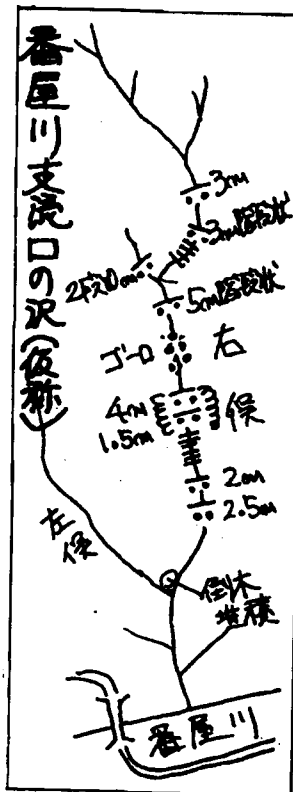 番屋川支流口の沢(仮称)
3m
3m階段状
2段10m
5m階段状
ゴーロ
右
俣
4m
1.5m
2m
2.5m
左
俣
倒木
堆積
番屋川